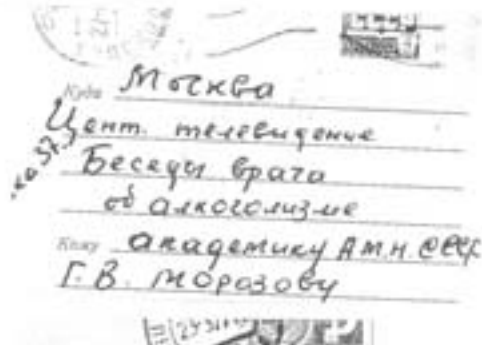 Куда Москва
Цент. телевидение
Беседы врача
об алкоголизме
Кому академику А.М.Н. СССР
Г. В. Морозову